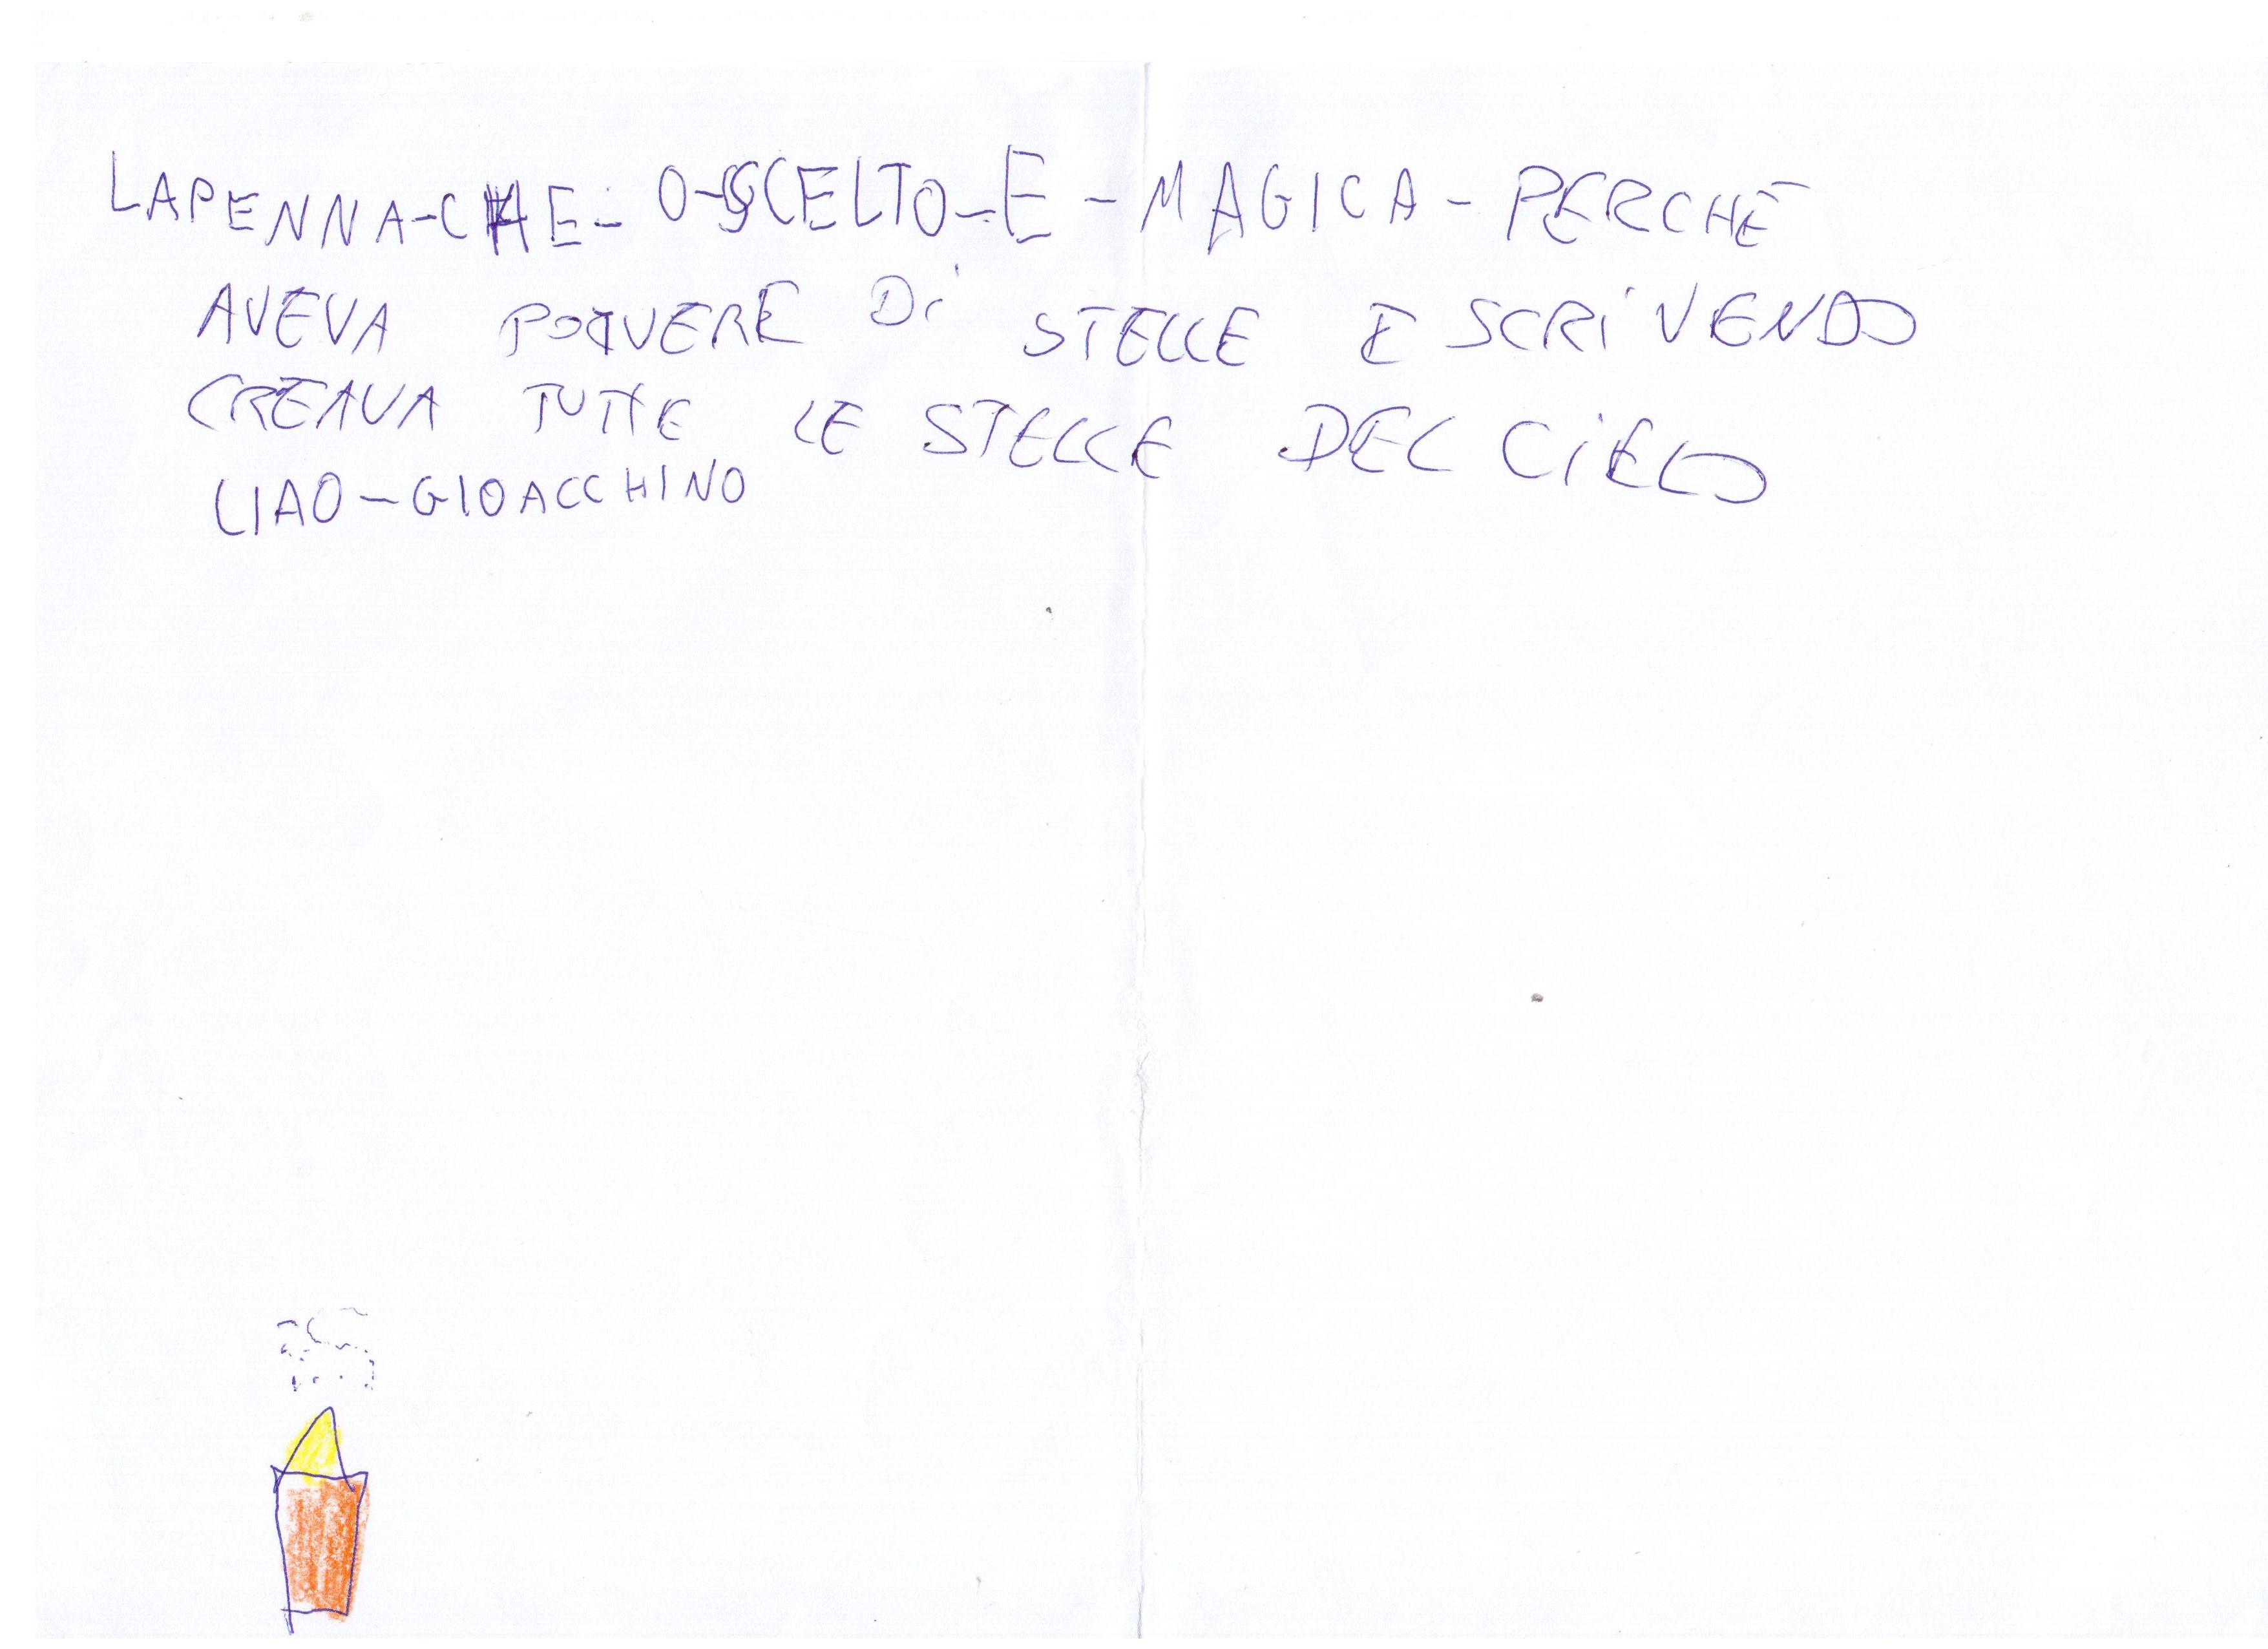 LAPENNA-CHE- O-SCELTO-E - MAGICA - PERCHÉ
AVEVA POLVERE Di STELLE E SCRiVENDO
CREAVA TUTTE LE STELLE DEL CiELO
CIAO-GIOACCHINO